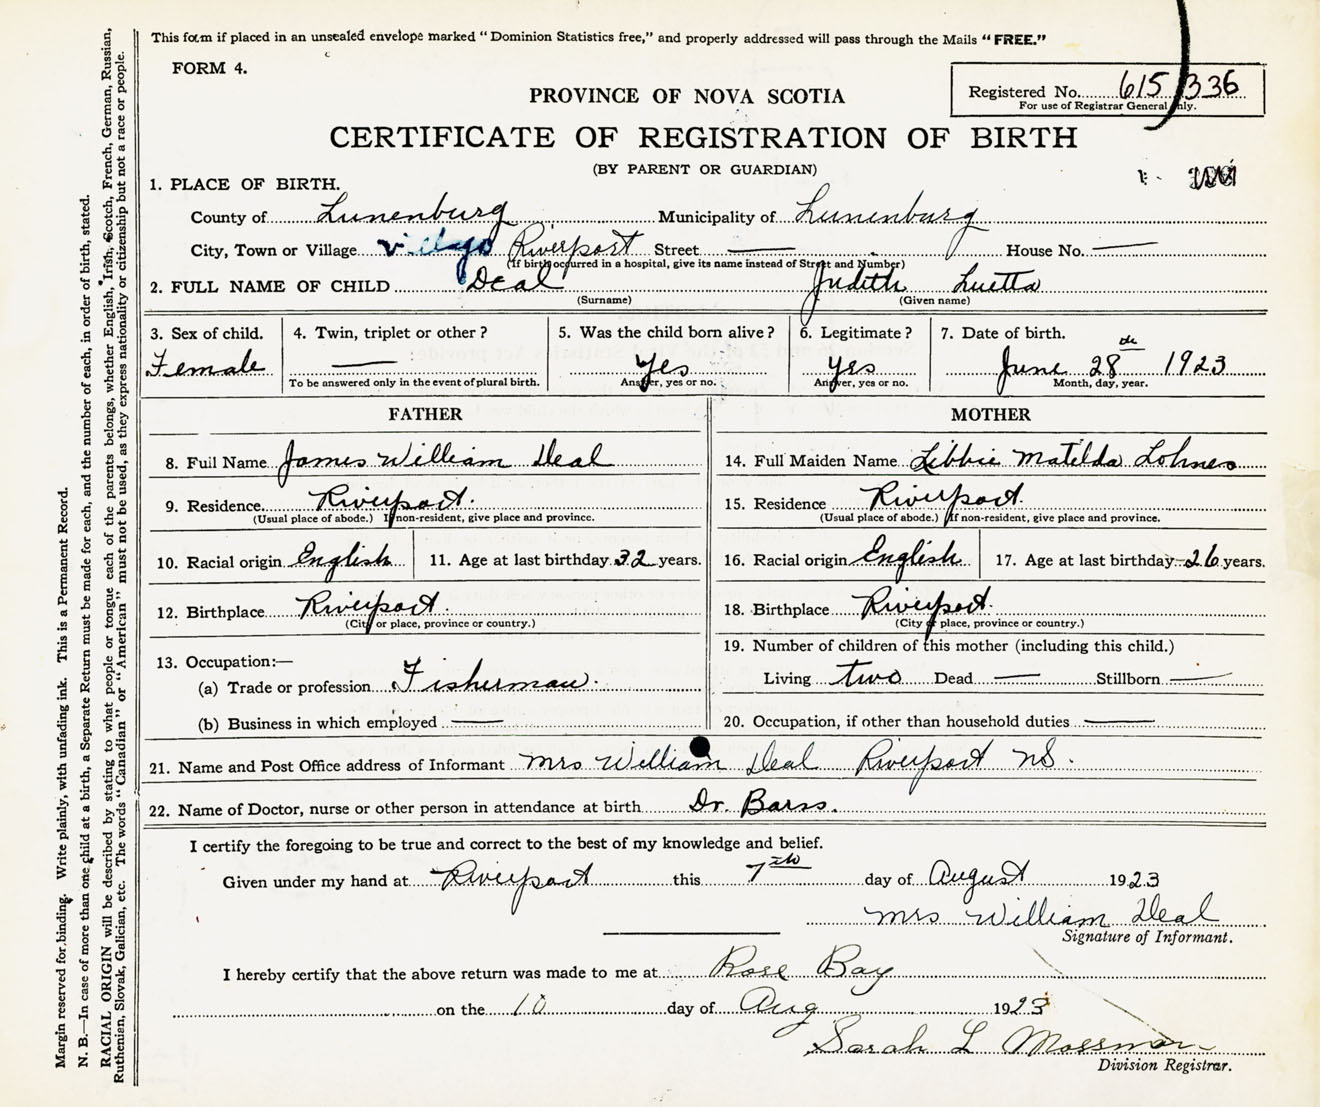 This form if placed in an unsealed envelope marked "Dominion Statistics free," and properly addressed will pass through the Mails "FREE."
FORM 4.
Registered No. 615 336
For use of Registrar General only.
PROVINCE OF NOVA SCOTIA
CERTIFICATE OF REGISTRATION OF BIRTH
(BY PARENT OR GUARDIAN)
1. PLACE OF BIRTH.
County of Lunenburg Municipality of Lunenburg
City, Town or Village village Riverport Street — House No. —
(If birth occurred in a hospital, give its name instead of Street and Number)
2. FULL NAME OF CHILD Deal Judith Luetta
(Surname) (Given name)
3. Sex of child. 4. Twin, triplet or other? 5. Was the child born alive? 6. Legitimate? 7. Date of birth.
Female — Yes Yes June 28th 1923
To be answered only in the event of plural birth. Answer, yes or no. Answer, yes or no. Month, day, year.
FATHER MOTHER
8. Full Name James William Deal 14. Full Maiden Name Libbie Matilda Lohnes
9. Residence Riverport. 15. Residence Riverport.
(Usual place of abode.) If non-resident, give place and province. (Usual place of abode.) If non-resident, give place and province.
10. Racial origin English 11. Age at last birthday 32 years. 16. Racial origin English 17. Age at last birthday 26 years.
12. Birthplace Riverport. 18. Birthplace Riverport.
(City or place, province or country.) (City or place, province or country.)
13. Occupation:— 19. Number of children of this mother (including this child.)
(a) Trade or profession Fisherman. Living two Dead — Stillborn —
(b) Business in which employed — 20. Occupation, if other than household duties —
21. Name and Post Office address of Informant Mrs William Deal Riverport NS.
22. Name of Doctor, nurse or other person in attendance at birth Dr. Barss.
I certify the foregoing to be true and correct to the best of my knowledge and belief.
Given under my hand at Riverport this 7th day of August 1923
Mrs William Deal
Signature of Informant.
I hereby certify that the above return was made to me at Rose Bay
on the 10 day of Aug 1923
Sarah L Mossman
Division Registrar.
Margin reserved for binding. Write plainly, with unfading ink. This is a Permanent Record.
N. B.—In case of more than one child at a birth, a Separate Return must be made for each, and the number of each, in order of birth, stated.
RACIAL ORIGIN will be described by stating to what people or tongue each of the parents belongs, whether English, Irish, Scotch, French, German, Russian,
Ruthenian, Slovak, Galician, etc. The words "Canadian" or "American" must not be used, as they express nationality or citizenship but not a race or people.